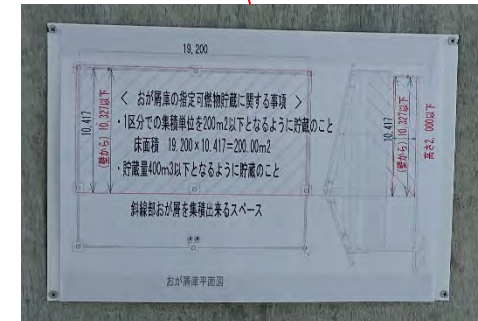 19,200
10,417
(壁から) 10,327以下
< おが屑庫の指定可燃物貯蔵に関する事項 >
・1区分での集積単位を200m2以下となるように貯蔵のこと
床面積 19.200×10.417=200.00m2
・貯蔵量400m3以下となるように貯蔵のこと
斜線部おが屑を集積出来るスペース
おが屑庫平面図
10,417
(壁から) 10,327以下
高さ2,000以下